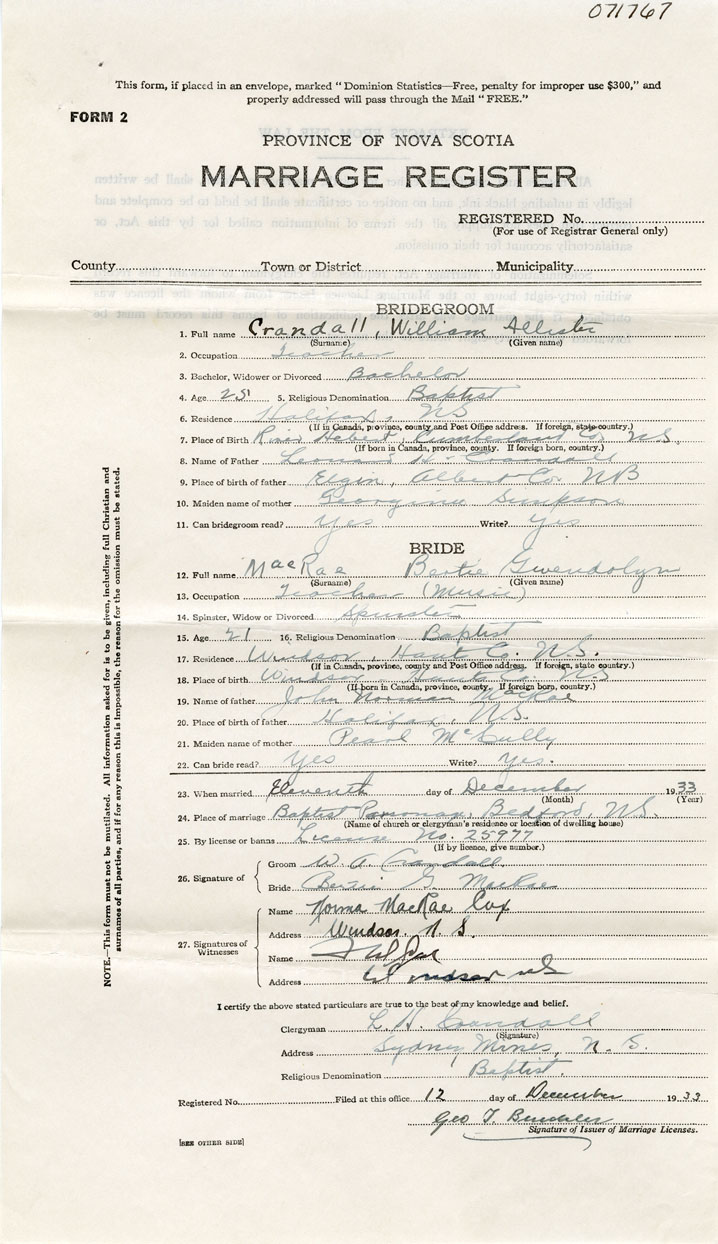 071767
This form, if placed in an envelope, marked "Dominion Statistics—Free, penalty for improper use $300," and
properly addressed will pass through the Mail "FREE."
FORM 2
PROVINCE OF NOVA SCOTIA
MARRIAGE REGISTER
REGISTERED No.
(For use of Registrar General only)
County Town or District Municipality
BRIDEGROOM
1. Full name Crandall, William Allister
(Surname) (Given name)
2. Occupation Teacher
3. Bachelor, Widower or Divorced Bachelor
4. Age 25 5. Religious Denomination Baptist
6. Residence Halifax, NS
(If in Canada, province, county and Post Office address. If foreign, state country.)
7. Place of Birth River Hebert, Cumberland Co. N.S.
(If born in Canada, province, county. If foreign born, country.)
8. Name of Father H. Crandall
9. Place of birth of father Elgin, Albert Co. NB
10. Maiden name of mother Georgina Simpson
11. Can bridegroom read? Yes Write? Yes
BRIDE
12. Full name MacRae Bertie Gwendolyn
(Surname) (Given name)
13. Occupation Teacher (Music)
14. Spinster, Widow or Divorced Spinster
15. Age 21 16. Religious Denomination Baptist
17. Residence Windsor, Hants Co. N.S.
(If in Canada, province, county and Post Office address. If foreign, state country.)
18. Place of birth Windsor, Hants Co. N.S
(If born in Canada, province, county. If foreign born, country.)
19. Name of father John Norman MacRae
20. Place of birth of father Halifax, N.S.
21. Maiden name of mother Pearl McCully
22. Can bride read? Yes Write? Yes.
23. When married Eleventh day of December 1933
(Month) (Year)
24. Place of marriage Baptist Parsonage, Bedford, N.S.
(Name of church or clergyman's residence or location of dwelling house)
25. By license or banns License No. 25977
(If by licence, give number.)
26. Signature of
Groom W. A. Crandall
Bride G. MacRae
27. Signatures of
Witnesses
Name Norma MacRae Cox
Address Windsor. N.S.
Name
Address Windsor NS
I certify the above stated particulars are true to the best of my knowledge and belief.
Clergyman L. H. Crandall
(Signature)
Address Sydney Mines, N.S.
Religious Denomination Baptist.
Registered No. Filed at this office 12 day of December 1933
Geo T.
Signature of Issuer of Marriage Licenses.
[SEE OTHER SIDE]
NOTE.—This form must not be mutilated. All information asked for is to be given, including full Christian and
surnames of all parties, and if for any reason this is impossible, the reason for the omission must be stated.